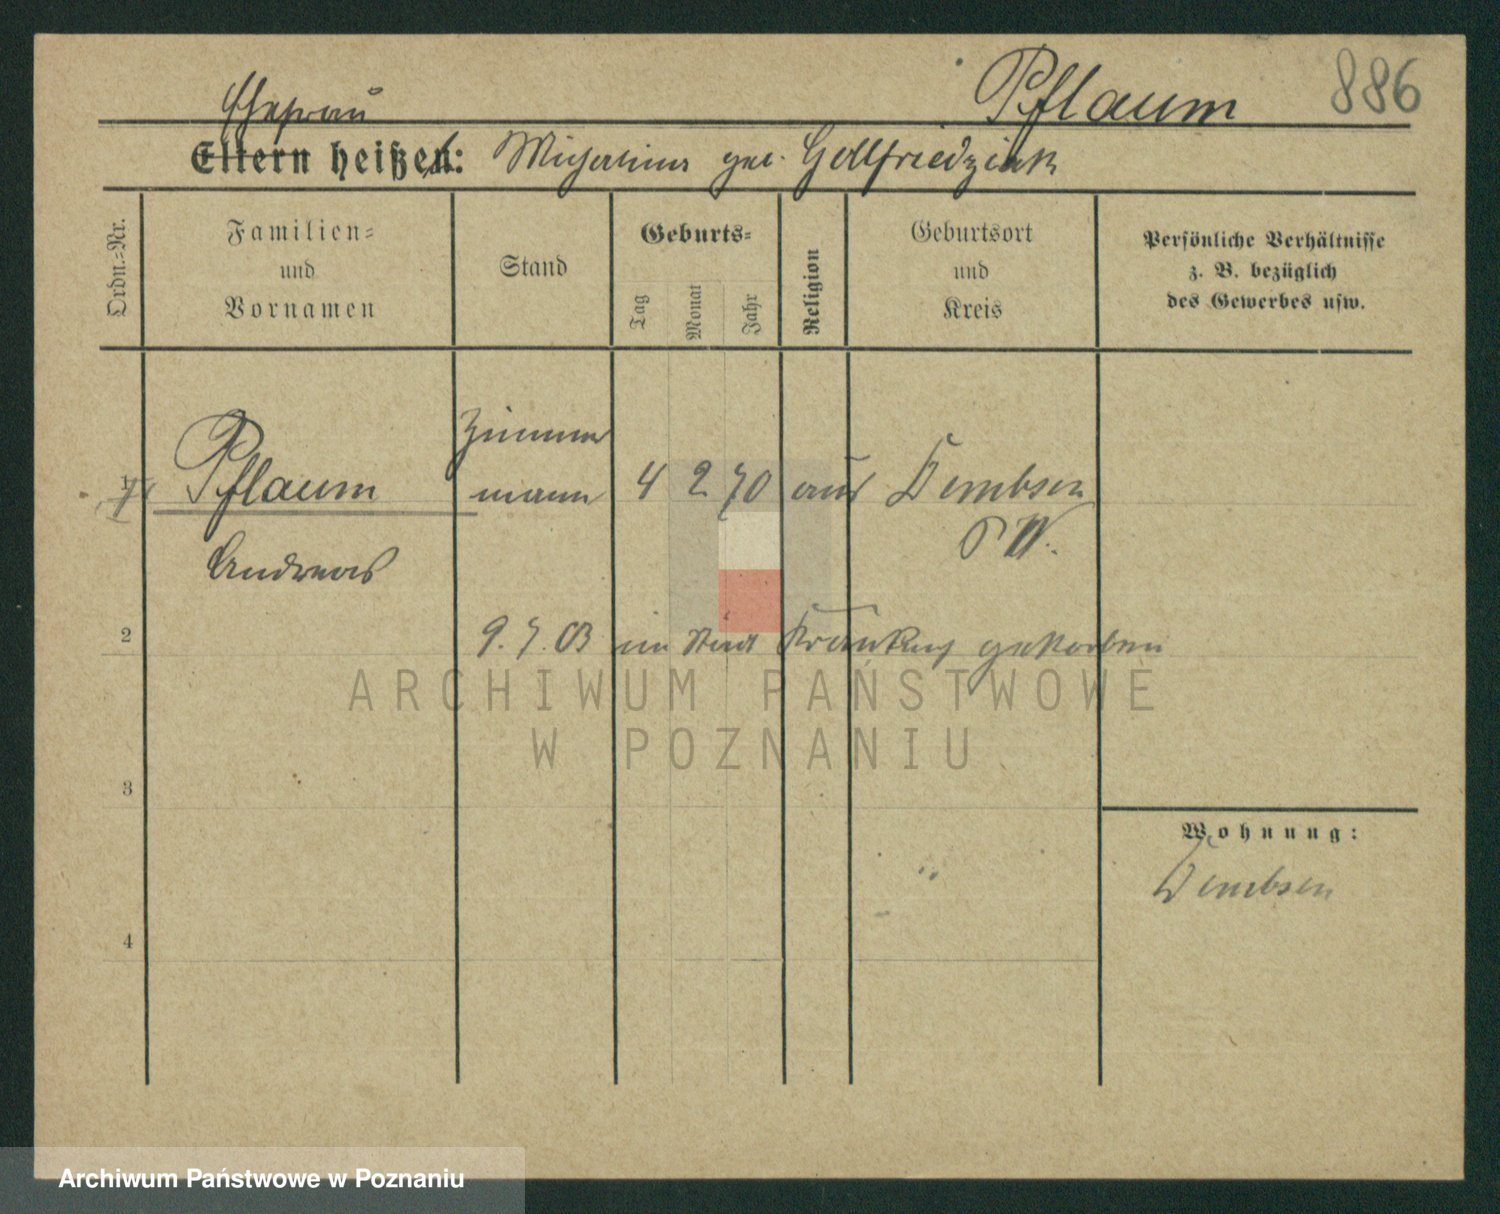 Pflaum 886
Ehefrau
Eltern heißen: geb.
Ordn.-Nr.
Familien-
und
Vornamen
Stand
Geburts-
Tag
Monat
Jahr
Religion
Geburtsort
und
Kreis
Persönliche Verhältnisse
z. B. bezüglich
des Gewerbes usw.
1 Pflaum
Andreas
Zimmer
mann
4 2 70
Dembsen
P W.
2
9. 7. 03 im Stadt gestorben
ARCHIWUM PAŃSTWOWE
W POZNANIU
3
Wohnung:
Dembsen
4
Archiwum Państwowe w Poznaniu